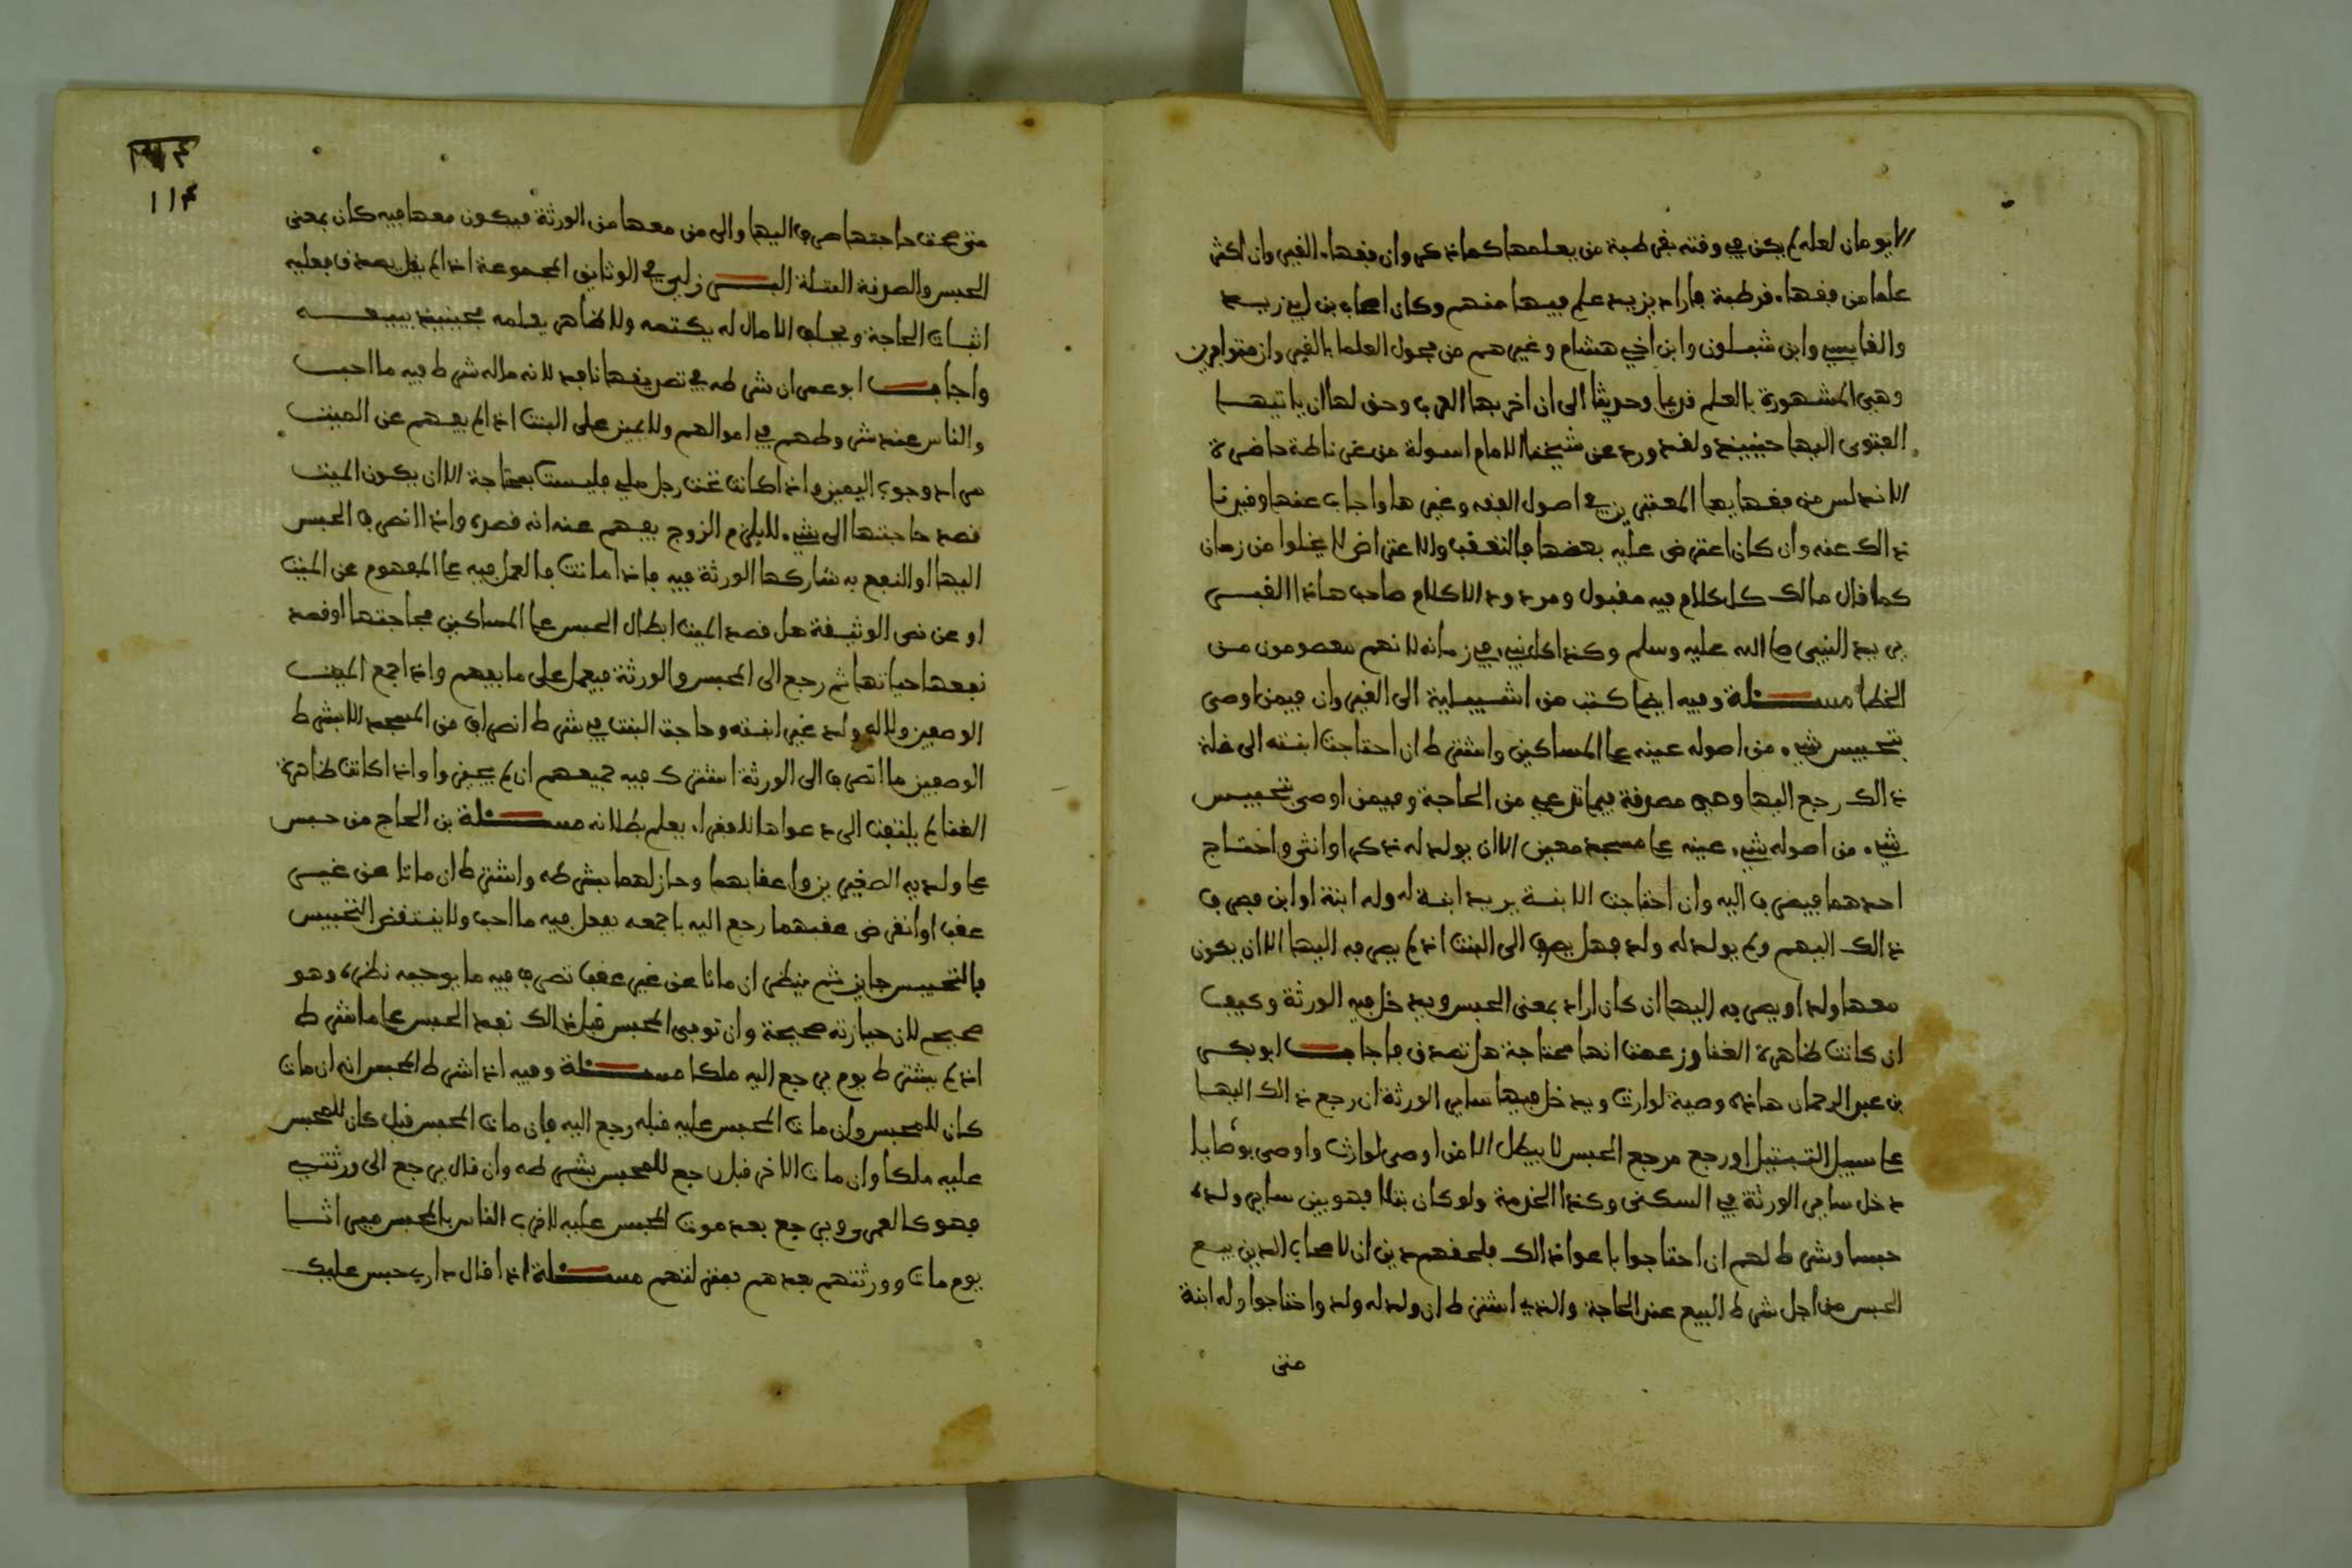 الايومان لعله لم يكن في وقته بقرطبة من يعلمها كما ذكر وان فقهاء القيروان اكثر
علما من فقهاء قرطبة فاراد يزيد علم فيها منهم وكان اصحاب بن ابي زيد
والقابسي وابن شبلون وابن اخي هشام وغيرهم من فحول العلما بالقيروان متوافرين
وهي المشهورة بالعلم قديما وحديثا الى ان اخربها العرب وحق لها ان ياتيها
الفتوى اليها حينيذ ولقد ورد عن شيخنا الامام اسولة من غرناطة حاضرة
الاندلس من فقهايها المعتبرين في اصول الفقه وغيرها واجاب عنها وقيدنا
ذالك عنه وان كان اعترض عليه بعضها بالتعقب والاعتراض لا يخلوا من زمان
كما قال مالك كل كلام فيه مقبول ومردود الا كلام صاحب هاذا القبر
يريد النبي صلى الله عليه وسلم وكذا كل نبي في زمانه لانهم معصومون من
الخطا مسئلة وفيه ايضا كتب من اشبيلية الى القيروان فيمن اوصى
بتحبيس شيء من اصوله عينه على المساكين واشترط ان احتاجت ابنته الى غلة
ذالك رجع اليها وهي مصدقة فيما تدعي من الحاجة وفيمن اوصى بتحبيس
شيء من اصوله شيء عينه على مسجد معين الا ان يولد له ذكر او انثى واحتاج
احدهما فيصرف اليه وان احتاجت الابنة يريد ابنة له وله ابنة او ابن فيصرف
ذالك اليهم ولم يولد له ولد فهل يصرف الى البنت اذ لم يصرفه اليها الا ان يكون
معها ولد او يصرفه اليها ان كان اراد بمعنى الحبس ويدخل فيه الورثة وكيف
ان كانت ظاهرة الغنا وزعمت انها محتاجة هل تصدق فاجاب ابو بكر
بن عبد الرحمان هاذه وصية لوارث ويدخل فيها ساير الورثة ان رجع ذالك اليها
على سبيل التمثيل او رجع مرجع الحبس لا يبطل الا من اوصى لوارث واوصى بوصايا
دخل ساير الورثة في السكنى وكذا الخدمة ولو كان بتلا فهو بين ساير ولده
حبسا وشرط لهم ان احتاجوا باعوا ذالك فلحقهم دين ان لاصحاب الدين بيع
الحبس من اجل شرط البيع عند الحاجة والذي اشترط ان ولد له ولد واحتاجوا وله ابنة
متى
١١٤
متى صحت حاجتها صرف اليها والى من معها من الورثة فيكون معها فيه كان بمعنى
الحبس والصدقة البتلة البرزلي في الوثايق المجموعة اذا لم يقل يصدق فعليه
اثبات الحاجة ويحلف الا مال له يكتمه ولا ظاهر يعلمه فحينيذ يبيعه
واجاب ابو عمران شرطه في تصديقها نافذ لانه ماله شرط فيه ما احب
والناس عند شروطهم في اموالهم ولا يمين على البنت اذا لم يفهم عن الميت
مراد وجوب اليمين واذا كانت تحت رجل ملي فليست بمحتاجة الا ان يكون الميت
قصد حاجتها الى شيء لا يلزم الزوج يفهم عنه انه قصده واذا انصرف الحبس
اليها او النفع به شاركها الورثة فيه فاذا ماتت فالعمل فيه على المفهوم عن الميت
او عن نص الوثيقة هل قصد الميت ابطال الحبس على المساكين بحاجتها او قصد
نفعها حياتها ثم رجع الى المحبس والورثة فيعمل على ما يفهم واذا جمع الميت
الوصفين ولا له ولد غير ابنته وحاجت البنت في شرط انصراف من المسجد الا بشرط
الوصفين ما انصرف الى الورثة اشترك فيه جميعهم ان لم يجيزوا واذا كانت ظاهرة
الغنا لم يلتفت الى دعواها للفقر اذ يعلم بطلانه مسئلة بن الحاج من حبس
على ولديه الصغيرين واعقابهما وحاز لهما بشرطه واشترط ان ماتا عن غير
عقب او انقرض عقبهما رجع اليه باجمعه يفعل فيه ما احب ولا ينتقض التحبيس
فالتحبيس جايز ثم ينظر ان ماتا عن غير عقب تصرف فيه ما يوجبه نظره وهو
صحيح لان حيازته صحيحة وان توفي المحبس قبل ذالك نفذ الحبس على ما شرط
اذ لم يشترط يوم يرجع اليه ملكا مسئلة وفيه اذا شرط المحبس انه ان مات
كان للمحبس وان مات المحبس عليه قبله رجع اليه فان مات المحبس قبل كان للمحبس
عليه ملكا وان مات الاخر قبل رجع للمحبس بشرطه وان قال يرجع الى ورثتي
فهو كالعمرى ويرجع بعد موت المحبس عليه لاقرب الناس بالمحبس ميراثا
يوم مات وورثتهم بعدهم بمنزلتهم مسئلة اذا قال داري حبس عليك